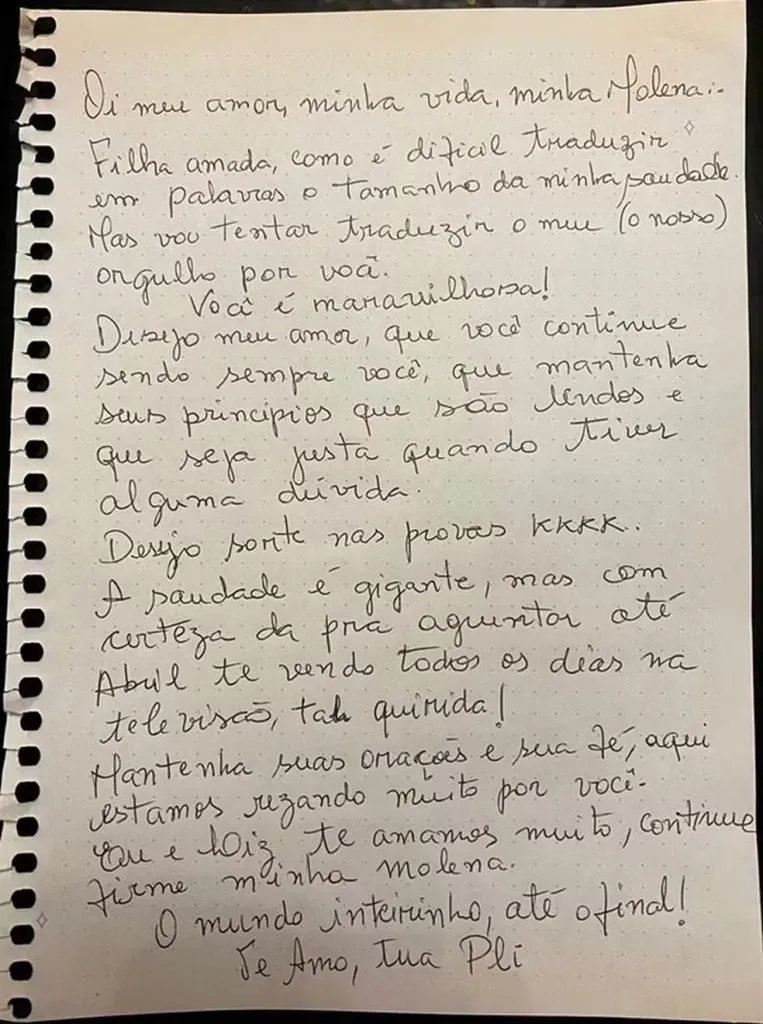 Oi meu amor, minha vida, minha Molena:-
Filha amada, como é dificil traduzir
em palavras o tamanho da minha saudade.
Mas vou tentar traduzir o meu (o nosso)
orgulho por você.
Você é maravilhosa!
Desejo meu amor, que você continue
sendo sempre você, que mantenha
seus princípios que são lindos e
que seja justa quando tiver
alguma dúvida.
Desejo sorte nas provas kkkk..
A saudade é gigante, mas com
certeza da pra aguentar até
Abril te vendo todos os dias na
televisão, tah quirida!
Mantenha suas orações e sua fé, aqui
estamos rezando muito por você.
Eu e te amamos muito, continue
firme minha molena.
O mundo inteirinho, até o final!
Te Amo, tua Pli